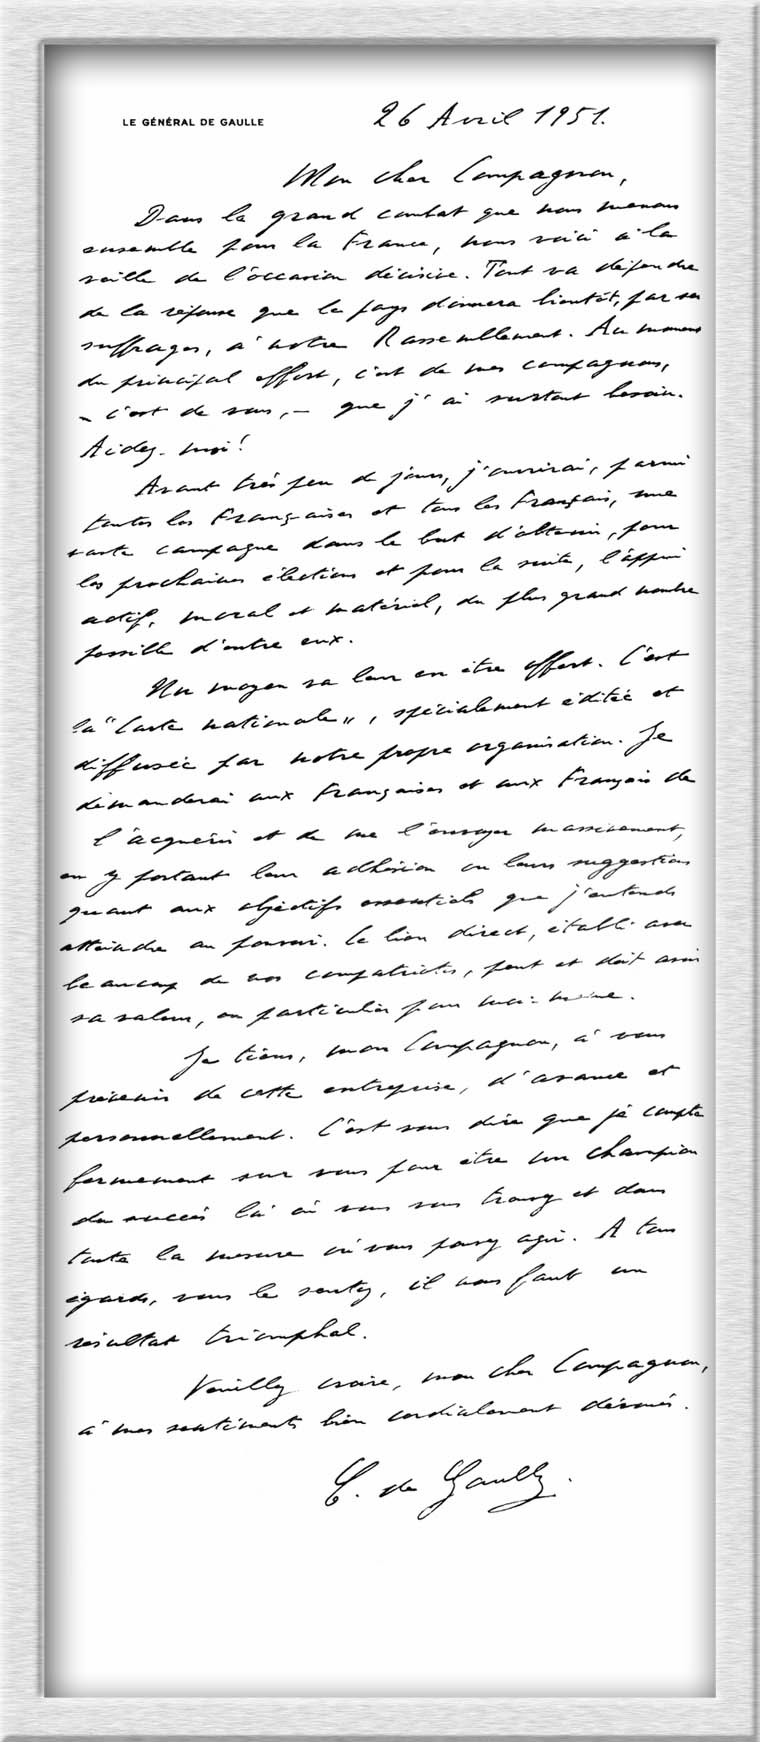 LE GÉNÉRAL DE GAULLE
26 Avril 1951.
Mon cher Compagnon,
Dans le grand combat que nous menons
ensemble pour la France, nous voici à la
veille de l'occasion décisive. Tout va dépendre
de la réponse que le pays donnera bientôt, par ses
suffrages, à notre Rassemblement. Au moment
du principal effort, c'est de mes compagnons,
- c'est de vous, - que j'ai surtout besoin.
Aidez-moi!
Avant très peu de jours, j'ouvrirai, parmi
toutes les Françaises et tous les Français, une
vaste campagne dans le but d'obtenir, pour
les prochaines élections et pour la suite, l'appui
actif, moral et matériel, du plus grand nombre
possible d'entre eux.
Un moyen va leur en être offert. C'est
la "Carte nationale", spécialement éditée et
diffusée par notre propre organisation. Je
demanderai aux Françaises et aux Français de
l'acquérir et de me l'envoyer massivement,
en y portant leur adhésion ou leurs suggestions
quant aux objectifs essentiels que j'entends
atteindre au pouvoir. Ce lien direct, établi avec
beaucoup de nos compatriotes, peut et doit avoir
sa valeur, en particulier pour moi-même.
Je tiens, mon Compagnon, à vous
prévenir de cette entreprise, d'avance et
personnellement. C'est vous dire que je compte
fermement sur vous pour être un champion
du succès là où vous vous trouvez et dans
toute la mesure où vous pouvez agir. A tous
égards, vous le sentez, il nous faut un
résultat triomphal.
Veuillez croire, mon cher Compagnon,
à mes sentiments bien cordialement dévoués.
C. de Gaulle.